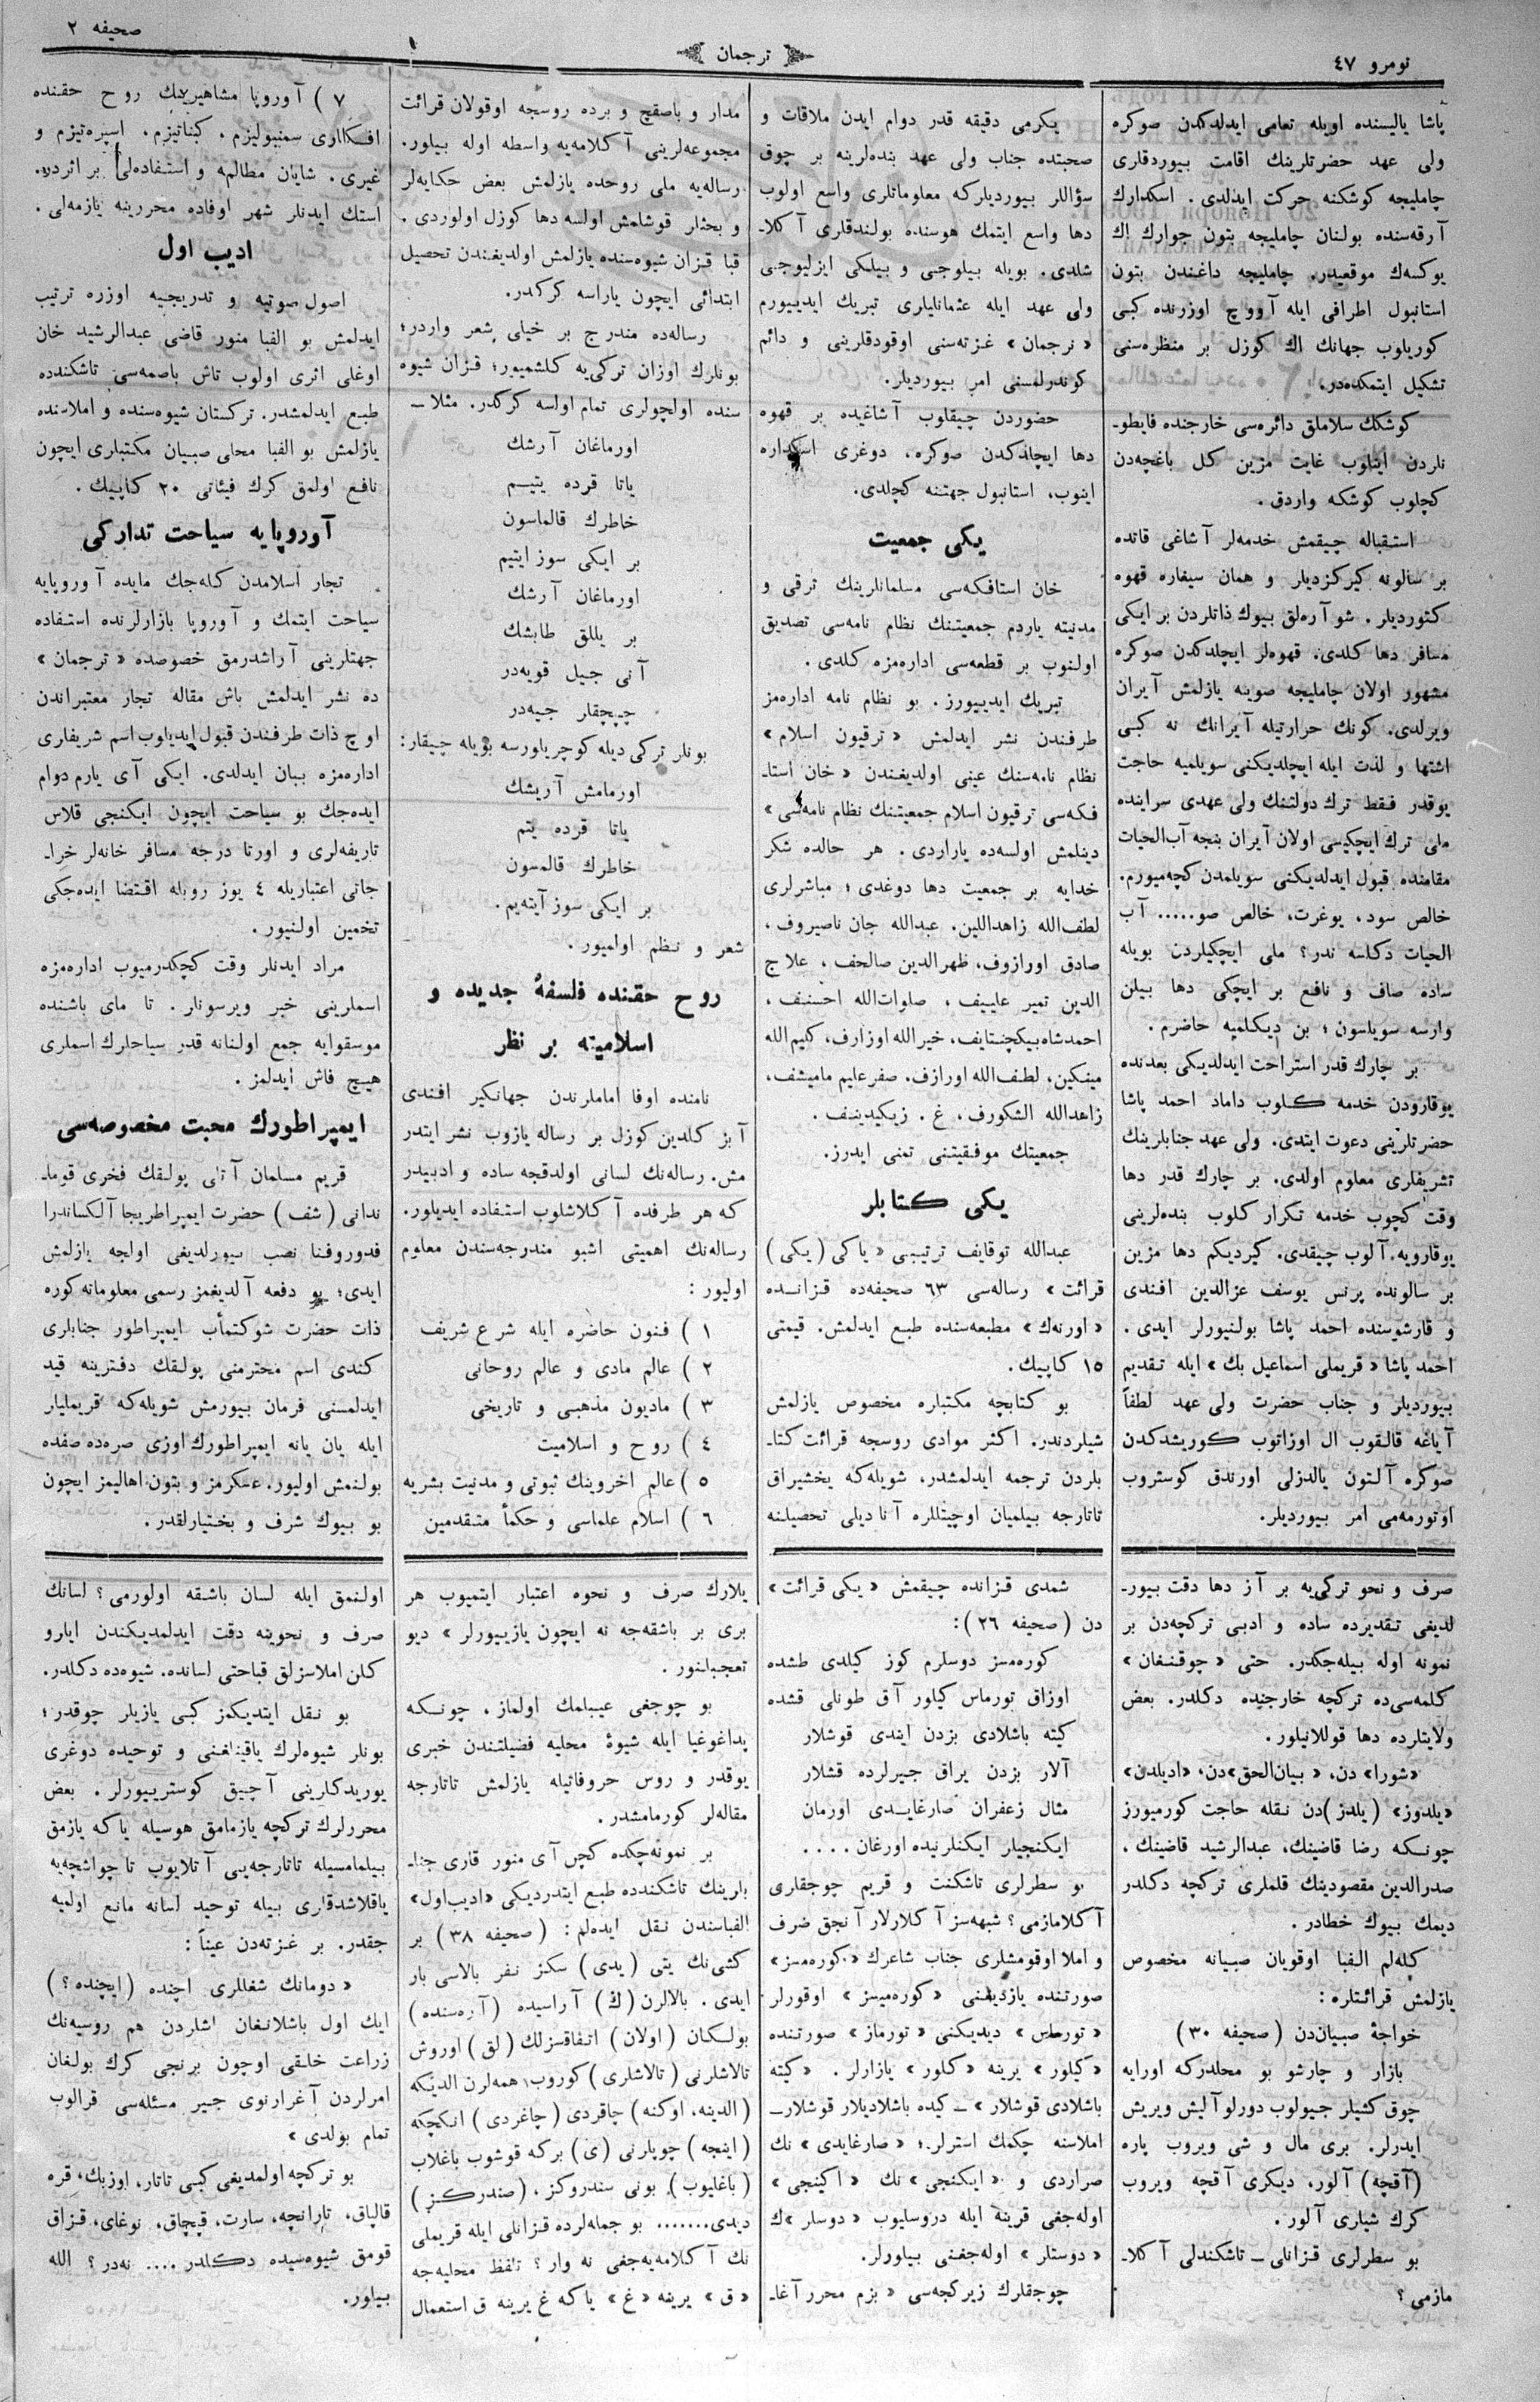 نومرو ٤٧
ترجمان
صحيفه ٢
پاشا ياليسنده اويله تعامى ايدلدكدن صوكره
ولى عهد حضرتلرينك اقامت بيوردقلرى
چامليجه كوشكنه حركت ايدلدى . اسكدارك
آرقه‌سنده بولنان چامليجه بتون جوارك اك
يوكسه‌ك موقعيدر. چامليجه داغندن بتون
استانبول اطرافى ايله آووچ اوزرنده كبى
كوريلوب جهانك اك كوزل بر منظره‌سنى
تشكيل ايتمكده‌در.
كوشكك سلاملق دائره‌سى خارجنده فايطو-
نلردن اينلوب غايت مزين كل باغچه‌دن
كچلوب كوشكه واردق .
استقباله چيقمش خدمه‌لر آشاغى قاتده
بر سالونه كيركزديلر و همان سيغاره قهوه
كتورديلر . شو آره‌لق بيوك ذاتلردن بر ايكى
مسافر دها كلدى. قهوه‌لر ايچلدكدن صوكره
مشهور اولان چامليجه صوينه يازلمش آيران
ويرلدى. كونك حرارتيله آيرانك نه كبى
اشتها و لذت ايله ايچلديكنى سويلميه حاجت
يوقدر فقط ترك دولتنك ولى عهدى سراينده
ملى ترك ايچكيسى اولان آيران بنجه آب‌الحيات
مقامنده قبول ايدلديكنى سويلمدن كچه‌ميورم.
خالص سود، يوغرت، خالص صو..... آب
الحيات دكلسه ندر؟ ملى ايچكيلردن بويله
ساده صاف و نافع بر ايچكى دها بيلن
وارسه سويلسون ؛ بن ديكلميه حاضرم .
بر چارك قدر استراحت ايدلديكى بعدنده
يوقارودن خدمه كلوب داماد احمد پاشا
حضرتلرينى دعوت ايتدى. ولى عهد جنابلرينك
تشريفلرى معلوم اولدى. بر چارك قدر دها
وقت كچوب خدمه تكرار كلوب بنده‌لرينى
يوقارويه آلوب چيقدى. كيرديكم دها مزين
بر سالونده پرنس يوسف عزالدين افندى
و قارشوسنده احمد پاشا بولنيورلر ايدى .
احمد پاشا « قريملى اسماعيل بك » ايله تقديم
بيورديلر و جناب حضرت ولى عهد لطفاً
آياغه قالقوب ال اوزاتوب كوريشدكدن
صوكره آلتون يالدزلى اورندق كوستروب
اوتورمه‌مى امر بيورديلر.
يكرمى دقيقه قدر دوام ايدن ملاقات و
صحبتده جناب ولى عهد بنده‌لرينه بر چوق
سؤاللر بيورديلركه معلوماتلرى واسع اولوب
دها واسع ايتمك هوسنده بولندقلرى آكلا-
شلدى. بويله بيلوجى و بيلكى ايزليوجى
ولى عهد ايله عثمانليلرى تبريك ايدييورم
« ترجمان » غزته‌سنى اوقودقلرينى و دائم
كوندرلمسنى امر بيورديلر.
حضوردن چيقلوب آشاغيده بر قهوه
دها ايچلدكدن صوكره، دوغرى اسكداره
اينوب، استانبول جهتنه كچلدى.
يكى جمعيت
خان استافكه‌سى مسلمانلرينك ترقى و
مدنيته ياردم جمعيتنك نظام نامه‌سى تصديق
اولنوب بر قطعه‌سى اداره‌مزه كلدى .
تبريك ايدييورز . بو نظام نامه اداره‌مز
طرفندن نشر ايدلمش « ترقيون اسلام »
نظام نامه‌سنك عينى اولديغندن « خان استا-
فكه‌سى ترقيون اسلام جمعيتنك نظام نامه‌سى »
دينلمش اولسه‌ده ياراردى . هر حالده شكر
خدايه بر جمعيت دها دوغدى ؛ مباشرلرى
لطف‌الله زاهداللين. عبدالله جان ناصيروف ،
صادق اورازوف، ظهرالدين صالحف ، علاج
الدين تمير علييف ، صلوات‌الله احسنف ،
احمدشاه بيكچنتايف، خيرالله اوزارف، كليم الله
مينكين، لطف‌الله اورازف. صفرعليم ماميشف،
زاهدالله الشكورف، غ . زيكيدينف .
جمعيتك موفقيتنى تمنى ايدرز.
يكى كتابلر
عبدالله توقايف ترتيبى « ياكى (يكى)
قرائت » رساله‌سى ٦٣ صحيفه‌ده قزانده
« اورنه‌ك » مطبعه‌سنده طبع ايدلمش. قيمتى
١٥ كاپيك.
بو كتابچه مكتبلره مخصوص يازلمش
شيلردندر. اكثر موادى روسجه قرائت كتا-
بلردن ترجمه ايدلمشدر، شويله‌كه يخشيراق
تاتارجه بيلميان اوچيتللره آنا ديلى تحصيلنه
مدار و باصقچ و برده روسجه اوقولان قرائت
مجموعه‌لرينى آكلامه‌يه واسطه اوله بيلور.
رساله‌يه ملى روحده يازلمش بعض حكايه‌لر
و بحثلر قوشلمش اولسه دها كوزل اولوردى .
قبا قزان شيوه‌سنده يازلمش اولديغندن تحصيل
ابتدائى ايچون ياراسه كركدر.
رساله‌ده مندرج بر خيلى شعر واردر؛
بونلرك اوزان تركى‌يه كلشميور؛ قزان شيوه
سنده اولچولرى تمام اولسه كركدر. مثلا —
اورماغان آرشك
ياتا قرده يتيم
خاطرك قالماسون
بر ايكى سوز ايتيم
اورماغان آرشك
بر يللق طابشك
آنى جيل قويه‌در
چپچقلر جيه‌در
بونلر تركى ديله كوچريلورسه بويله چيقار:
اورمامش آريشك
ياتا قرده يتم
خاطرك قالمسون
بر ايكى سوز آيته‌يم .
شعر و نظم اولميور .
روح حقنده فلسفهٔ جديده و
اسلاميته بر نظر
نامنده اوفا اماملرندن جهانكير افندى
آبز كلدين كوزل بر رساله يازوب نشر ايتدر
مش. رساله‌نك لسانى اولدقچه ساده و ادبيدر
كه هر طرفده آكلاشلوب استفاده ايديلور.
رساله‌نك اهميتى اشبو مندرجه‌سندن معلوم
اوليور :
١ ) فنون حاضره ايله شرع شريف
٢ ) عالم مادى و عالم روحانى
٣ ) ماديون مذهبى و تاريخى
٤ ) روح و اسلاميت
٥ ) عالم اخروينك ثبوتى و مدنيت بشريه
٦ ) اسلام علماسى و حكمأ متقدمين
٧ ) آوروپا مشاهيرينك روح حقنده
افكارى سمنبوليزم . كپناتيزم. اسپره‌تيزم و
غيرى . شايان مطالعه و استفاده‌لى بر اثردر.
استك ايدنلر شهر اوفاده محررينه يازمه‌لى .
اديب اول
اصول صوتيه و تدريجيه اوزره ترتيب
ايدلمش بو الفبا منور قاضى عبدالرشيد خان
اوغلى اثرى اولوب تاش باصمه‌سى تاشكندده
طبع ايدلمشدر. تركستان شيوه‌سنده و املاسنده
يازلمش بو الفبا محلى صبيان مكتبلرى ايچون
نافع اولمق كرك فيئاتى ٢٠ كاپيك .
آوروپايه سياحت تداركى
تجار اسلامدن كله‌جك مايده آوروپايه
سياحت ايتمك و آوروپا بازارلرنده استفاده
جهتلرينى آراشدرمق خصوصده « ترجمان »
ده نشر ايدلمش باش مقاله تجار معتبراندن
اوچ ذات طرفندن قبول ايديلوب اسم شريفلرى
اداره‌مزه بيان ايدلدى. ايكى آى يارم دوام
ايده‌جك بو سياحت ايچون ايكنجى قلاس
تاريفه‌لرى و اورتا درجه مسافر خانه‌لر خرا-
جاتى اعتباريله ٤ يوز روبله اقتضا ايده‌جكى
تخمين اولنيور .
مراد ايدنلر وقت كچكدرميوب اداره‌مزه
اسملرينى خبر ويرسونلر . تا ماى باشنده
موسقوايه جمع اولنانه قدر سياحلرك اسملرى
هيچ فاش ايدلمز .
ايمپراطورك محبت مخصوصه‌سى
قريم مسلمان آتلى پولقك فخرى قوما-
ندانى (شف) حضرت ايمپراطريجا آلكساندرا
فدوروفنا نصب بيورلديغى اولجه يازلمش
ايدى؛ بو دفعه آلديغمز رسمى معلوماته كوره
ذات حضرت شوكتمأب ايمپراطور جنابلرى
كندى اسم محترمنى پولقك دفترينه قيد
ايدلمسنى فرمان بيورمش شويله‌كه قريمليلر
ايله يان يانه ايمپراطورك اوزى صره‌ده صفده
بولنمش اوليور. عسكرمز و بتون اهاليمز ايچون
بو بيوك شرف و بختيارلقدر.
صرف و نحو تركى‌يه بر آز دها دقت بيور-
لديغى تقديرده ساده و ادبى تركچه‌دن بر
نمونه اوله بيله‌جكدر. حتى « چوقنغان »
كلمه‌سى‌ده تركچه خارجنده دكلدر. بعض
ولايتلرده دها قوللانيلور.
«شورا» دن، « بيان‌الحق »دن، «اديل‌دن»
«يلدوز» (يلدز)دن نقله حاجت كورميورز
چونكه رضا قاضينك، عبدالرشيد قاضينك ،
صدرالدين مقصودينك قلملرى تركچه دكلدر
ديمك بيوك خطادر .
كله‌لم الفبا اوقويان صبيانه مخصوص
يازلمش قرائتلره :
خواجهٔ صبيان‌دن (صحيفه ٣٠)
بازار و چارشو بو محلدركه اورايه
چوق كشيلر جيولوب دورلو آليش ويريش
ايدرلر. برى مال و شى ويروب پاره
(آقچه) آلور، ديكرى آقچه ويروب
كرك شيلرى آلور .
بو سطرلرى قزانلى — تاشكندلى آكلا-
مازمى ؟
شمدى قزانده چيقمش « يكى قرائت »
دن (صحيفه ٢٦):
كوره‌مسز دوسلرم كوز كيلدى طشده
اوزاق تورماس كيلور آق طونلى قشده
كيته باشلادى بزدن ايندى قوشلار
آلار بزدن يراق جيرلرده قشلار
مثال زعفران صارغايدى اورمان
ايكنجيلر ايكنلرنيده اورغان ....
بو سطرلرى تاشكنت و قريم چوجقلرى
آكلامازمى ؟ شبهه‌سز آكلارلار آنجق صرف
و املا اوقومشلرى جناب شاعرك « كوره‌مسز »
صورتنده يازديغنى « كوره‌ميسز » اوقورلر
« تورماس » ديديكنى « تورماز » صورتنده
« كيلور » يرينه « كلور » يازارلر . « كيته
باشلادى قوشلار » — كيده باشلاديلار قوشلار —
املاسنه چكمك استرلر ؛ « صارغايدى » نك
صراردى و « ايكنجى » نك « اكينجى »
اوله‌جغى قرينه ايله دروسليوب « دوسلر »ك
« دوستلر » اوله‌جغنى بيلورلر.
چوجقلرك زيركجه‌سى « بزم محرر آغا-
يلارك صرف و نحوه اعتبار ايتميوب هر
برى بر باشقه‌جه نه ايچون يازييورلر » ديو
تعجبلنور .
بو چوجغى عيبلمك اولماز ، چونكه
پداغوغيا ايله شيوهٔ محليه فضيلتندن خبرى
يوقدر و روس حروفاتيله يازلمش تاتارجه
مقاله‌لر كورمامشدر .
بر نمونه‌چكده كچن آى منور قارى جنا-
بلرينك تاشكندده طبع ايتدرديكى «اديب‌اول»
الفباسندن نقل ايده‌لم : (صحيفه ٣٨) بر
كشى‌نك يتى (يدى) سكز نفر بالاسى بار
ايدى . بالالرن (ك) آراسيده (آره‌سنده)
بولكان (اولان) اتفاقسزلك (لق) اوروش
تالاشلرنى (تالاشلرى) كوروب، همه‌لرن الديكه
(الدينه، اوكنه) چاقردى (چاغردى) انكچكه
(اينجه) چوپلرنى (ى) بركه قوشوب باغلاب
(باغليوب) بونى سندروكز ، (صندركز)
ديدى....... بو جمله‌لرده قزانلى ايله قريملى
نك آكلامه‌يه‌جغى نه وار ؟ تلفظ محليه‌جه
« ق » يرينه « غ » ياكه غ يرينه ق استعمال
اولنمق ايله لسان باشقه اولورمى ؟ لسانك
صرف و نحوينه دقت ايدلمديكندن ايلرو
كلن املاسزلق قباحتى لسانده. شيوه‌ده دكلدر.
بو نقل ايتديكمز كبى يازيلر چوقدر ؛
بونلر شيوه‌لرك ياقينلغنى و توحيده دوغرى
يوريدكلرينى آچيق كوستريورلر . بعض
محررلرك تركچه يازمامق هوسيله ياكه يازمق
بيلمامسيله تاتارجه‌يى آتلايوب تا چواشچه‌يه
ياقلاشدقلرى بيله توحيد لسانه مانع اولميه
جقدر. بر غزته‌دن عيناً :
« دومانك شغللرى اچنده (ايچنده ؟)
ايك اول باشلانغان اشلردن هم روسيه‌نك
زراعت خلقى اوچون برنجى كرك بولغان
امرلردن آغرارنوى جير مسئله‌سى قرالوب
تمام بولدى »
بو تركچه اولمديغى كبى تاتار، اوزبك، قره
قالپاق، تارانچه، سارت، قپچاق، نوغاى، قزاق
قومق شيوه‌سيده دكلدر .... نه‌در ؟ الله
بيلور.